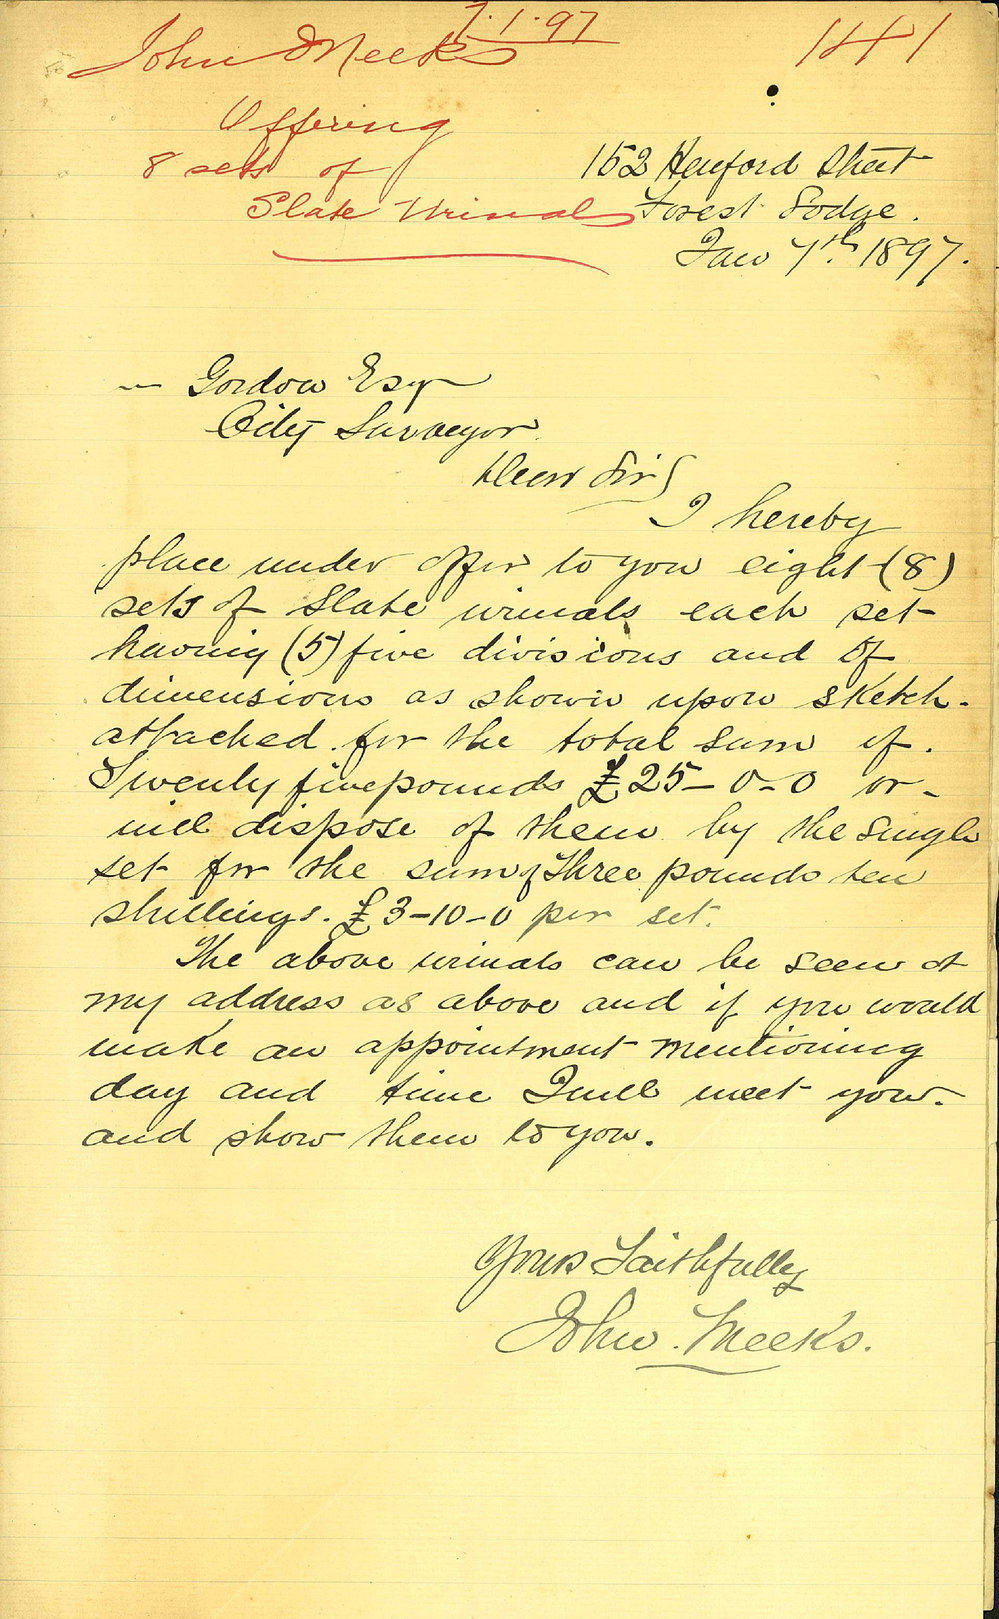 7.1.97
John Meeks
141
Offering
8 sets of
Slate Urinals
152 Hereford Street
Forest Lodge.
Jan 7th. 1897.
— Gordon Esq
City Surveyor.
Dear Sir
I hereby
place under offer to you eight (8)
sets of Slate urinals each set
having (5) five divisions and of
dimensions as shown upon sketch.
attached for the total sum of.
Twenty five pounds £25-0-0 or
will dispose of them by the single
set for the sum of Three pounds ten
shillings. £3-10-0 per set.
The above urinals can be seen at
my address as above and if you would
make an appointment mentioning
day and time I will meet you.
and show them to you.
Yours Faithfully
John. Meeks.